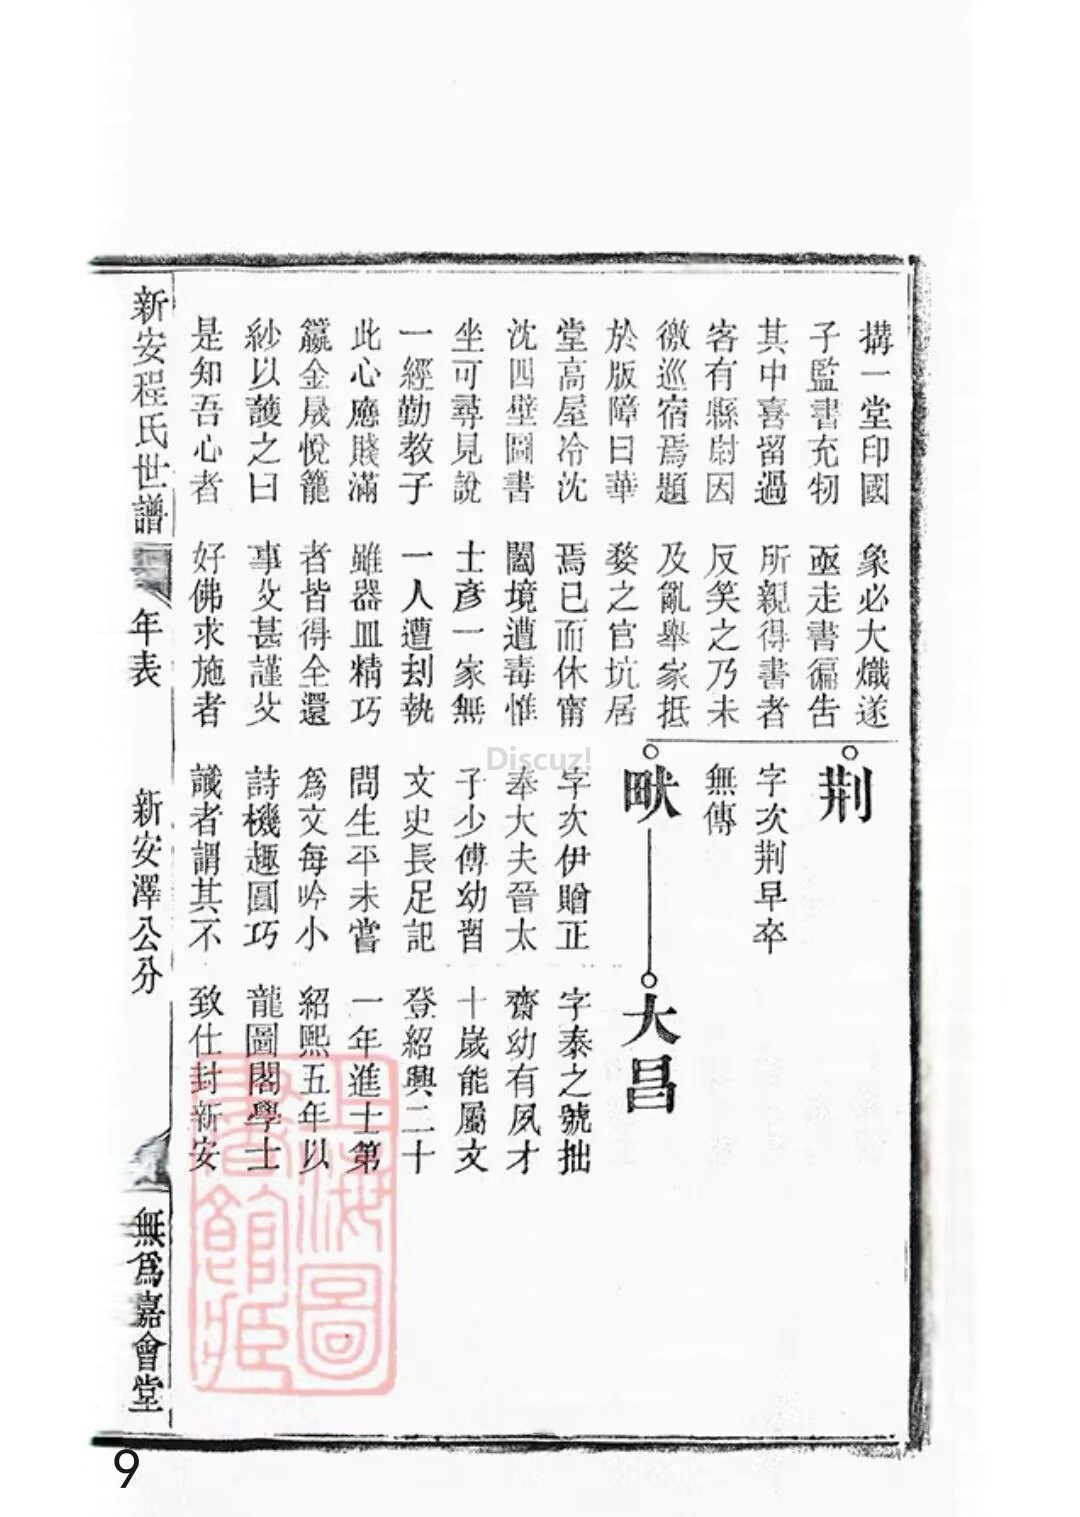 搆一堂印國
子監書充牣
其中喜留過
客有縣尉因
徼巡宿焉題
於版障曰華
堂高屋冷沈
沈四壁圖書
坐可尋見說
一經勤教子
此心應賤滿
籯金晟悅籠
紗以護之曰
是知吾心者
象必大熾遂
亟走書徧告
所親得書者
反笑之乃未
及亂舉家抵
婺之官坑居
焉已而休甯
闔境遭毒惟
士彥一家無
一人遭刦執
雖器皿精巧
者皆得全還
事父甚謹父
好佛求施者
荆
字次荆早卒
無傳
畎
字次伊贈正
奉大夫晉太
子少傅幼習
文史長足記
問生平未嘗
爲文每吟小
詩機趣圓巧
識者謂其不
大昌
字泰之號拙
齋幼有夙才
十歲能屬文
登紹興二十
一年進士第
紹熙五年以
龍圖閣學士
致仕封新安
新安程氏世譜
年表
新安澤公分
無爲嘉會堂
上海圖
書館藏
Discuz!
9